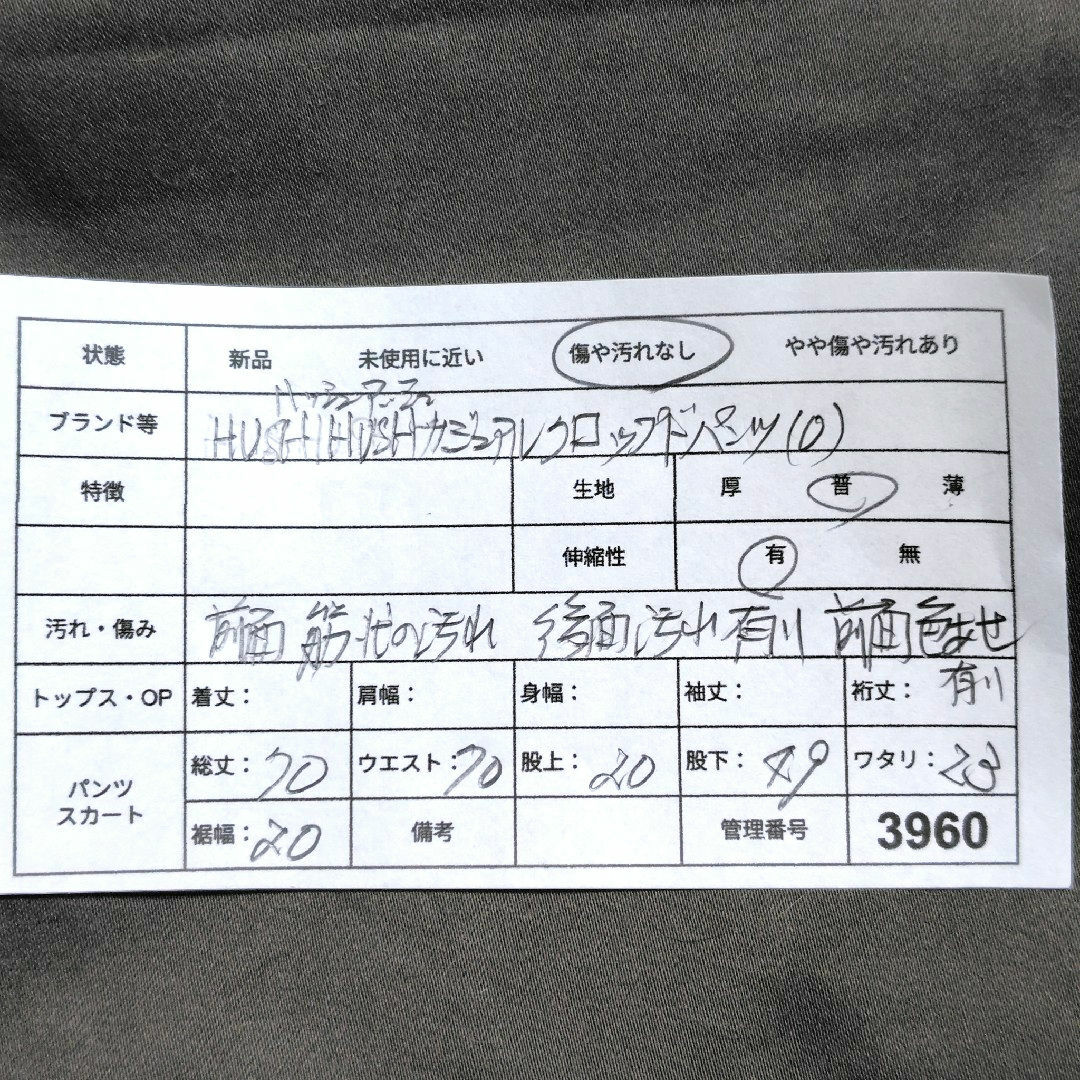 状態 新品 未使用に近い 傷や汚れなし やや傷や汚れあり
ハッシュアッシュ
ブランド等 HUSHHUSHカジュアルクロップドパンツ(0)
特徴 生地 厚 普 薄
伸縮性 有 無
汚れ・傷み 前面 筋状の汚れ 後面汚れ有り 前面色あせ
有り
トップス・OP 着丈： 肩幅： 身幅： 袖丈： 裄丈：
パンツ スカート 総丈：70 ウエスト：70 股上：20 股下：49 ワタリ：23
裾幅：20 備考 管理番号 3960